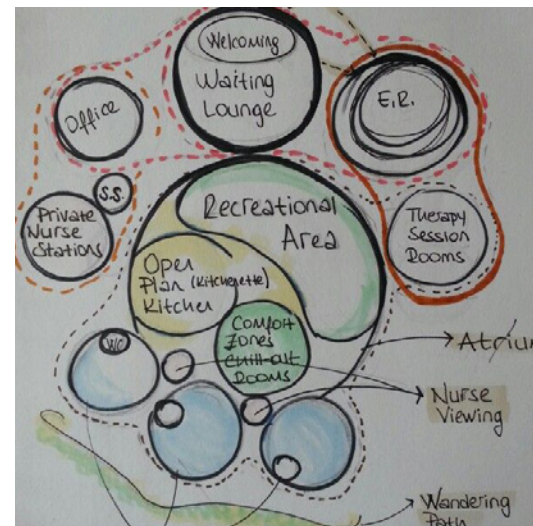 Welcoming
Waiting
Lounge
Office
E.R.
S.S.
Private
Nurse
Stations
Recreational
Area
Therapy
Session
Rooms
Open
Plan (Kitchenette)
Kitchen
Comfort
Zones
Chill-out
Rooms
WC
Atrium
Nurse
Viewing
Wandering
Path